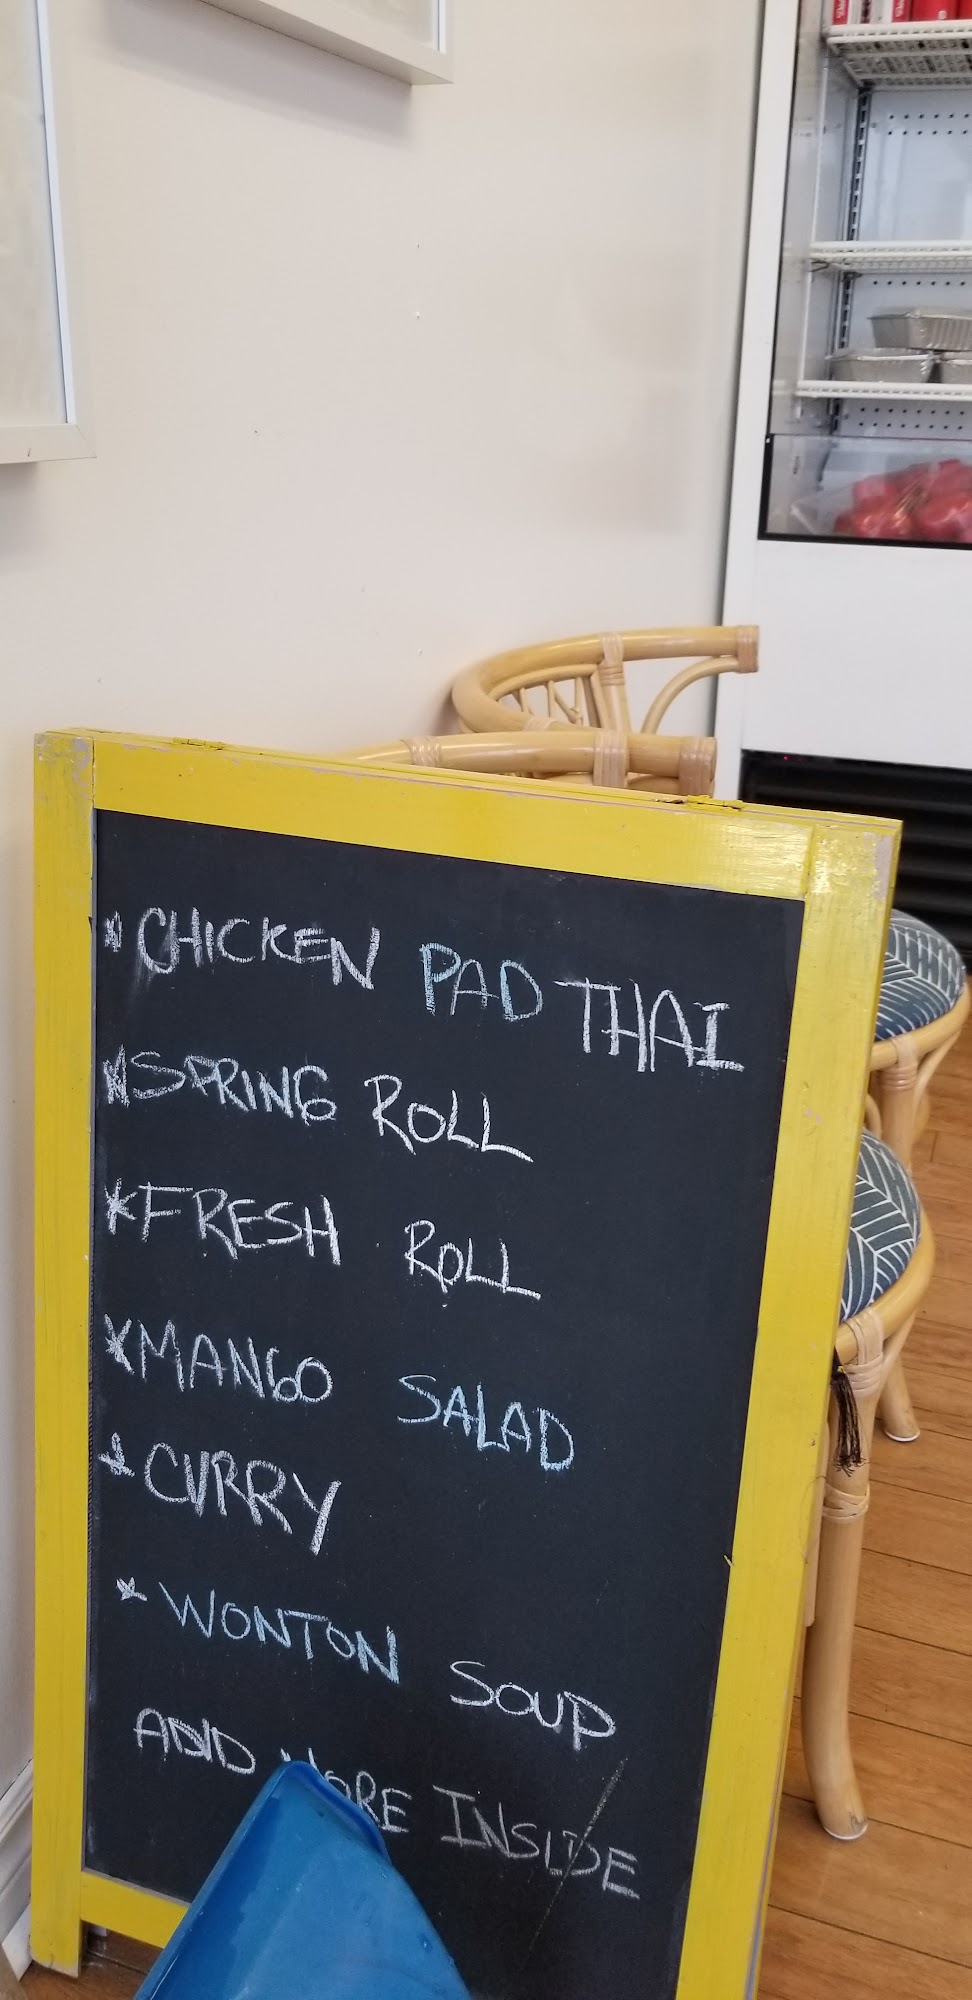 * CHICKEN PAD THAI
* SPRING ROLL
* FRESH ROLL
* MANGO SALAD
* CURRY
* WONTON SOUP
AND MORE INSIDE